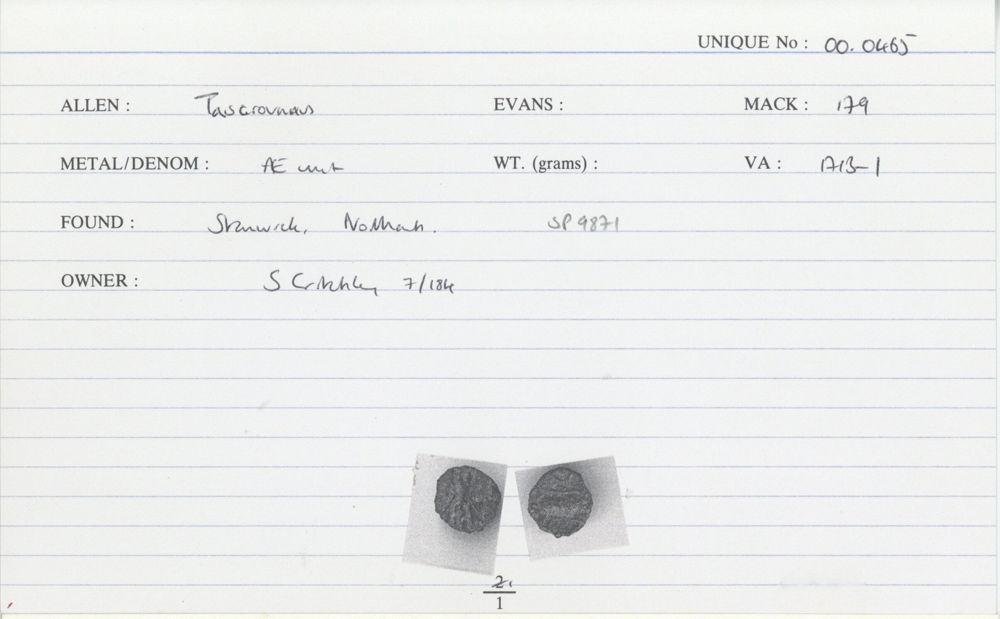 UNIQUE No : 00.0465
ALLEN : Tasciovanus EVANS : MACK : 179
METAL/DENOM : Æ unit WT. (grams) : VA : 1713-1
FOUND : Stanwick, Northants. SP 9871
OWNER : S Critchley 7/184
2.
1